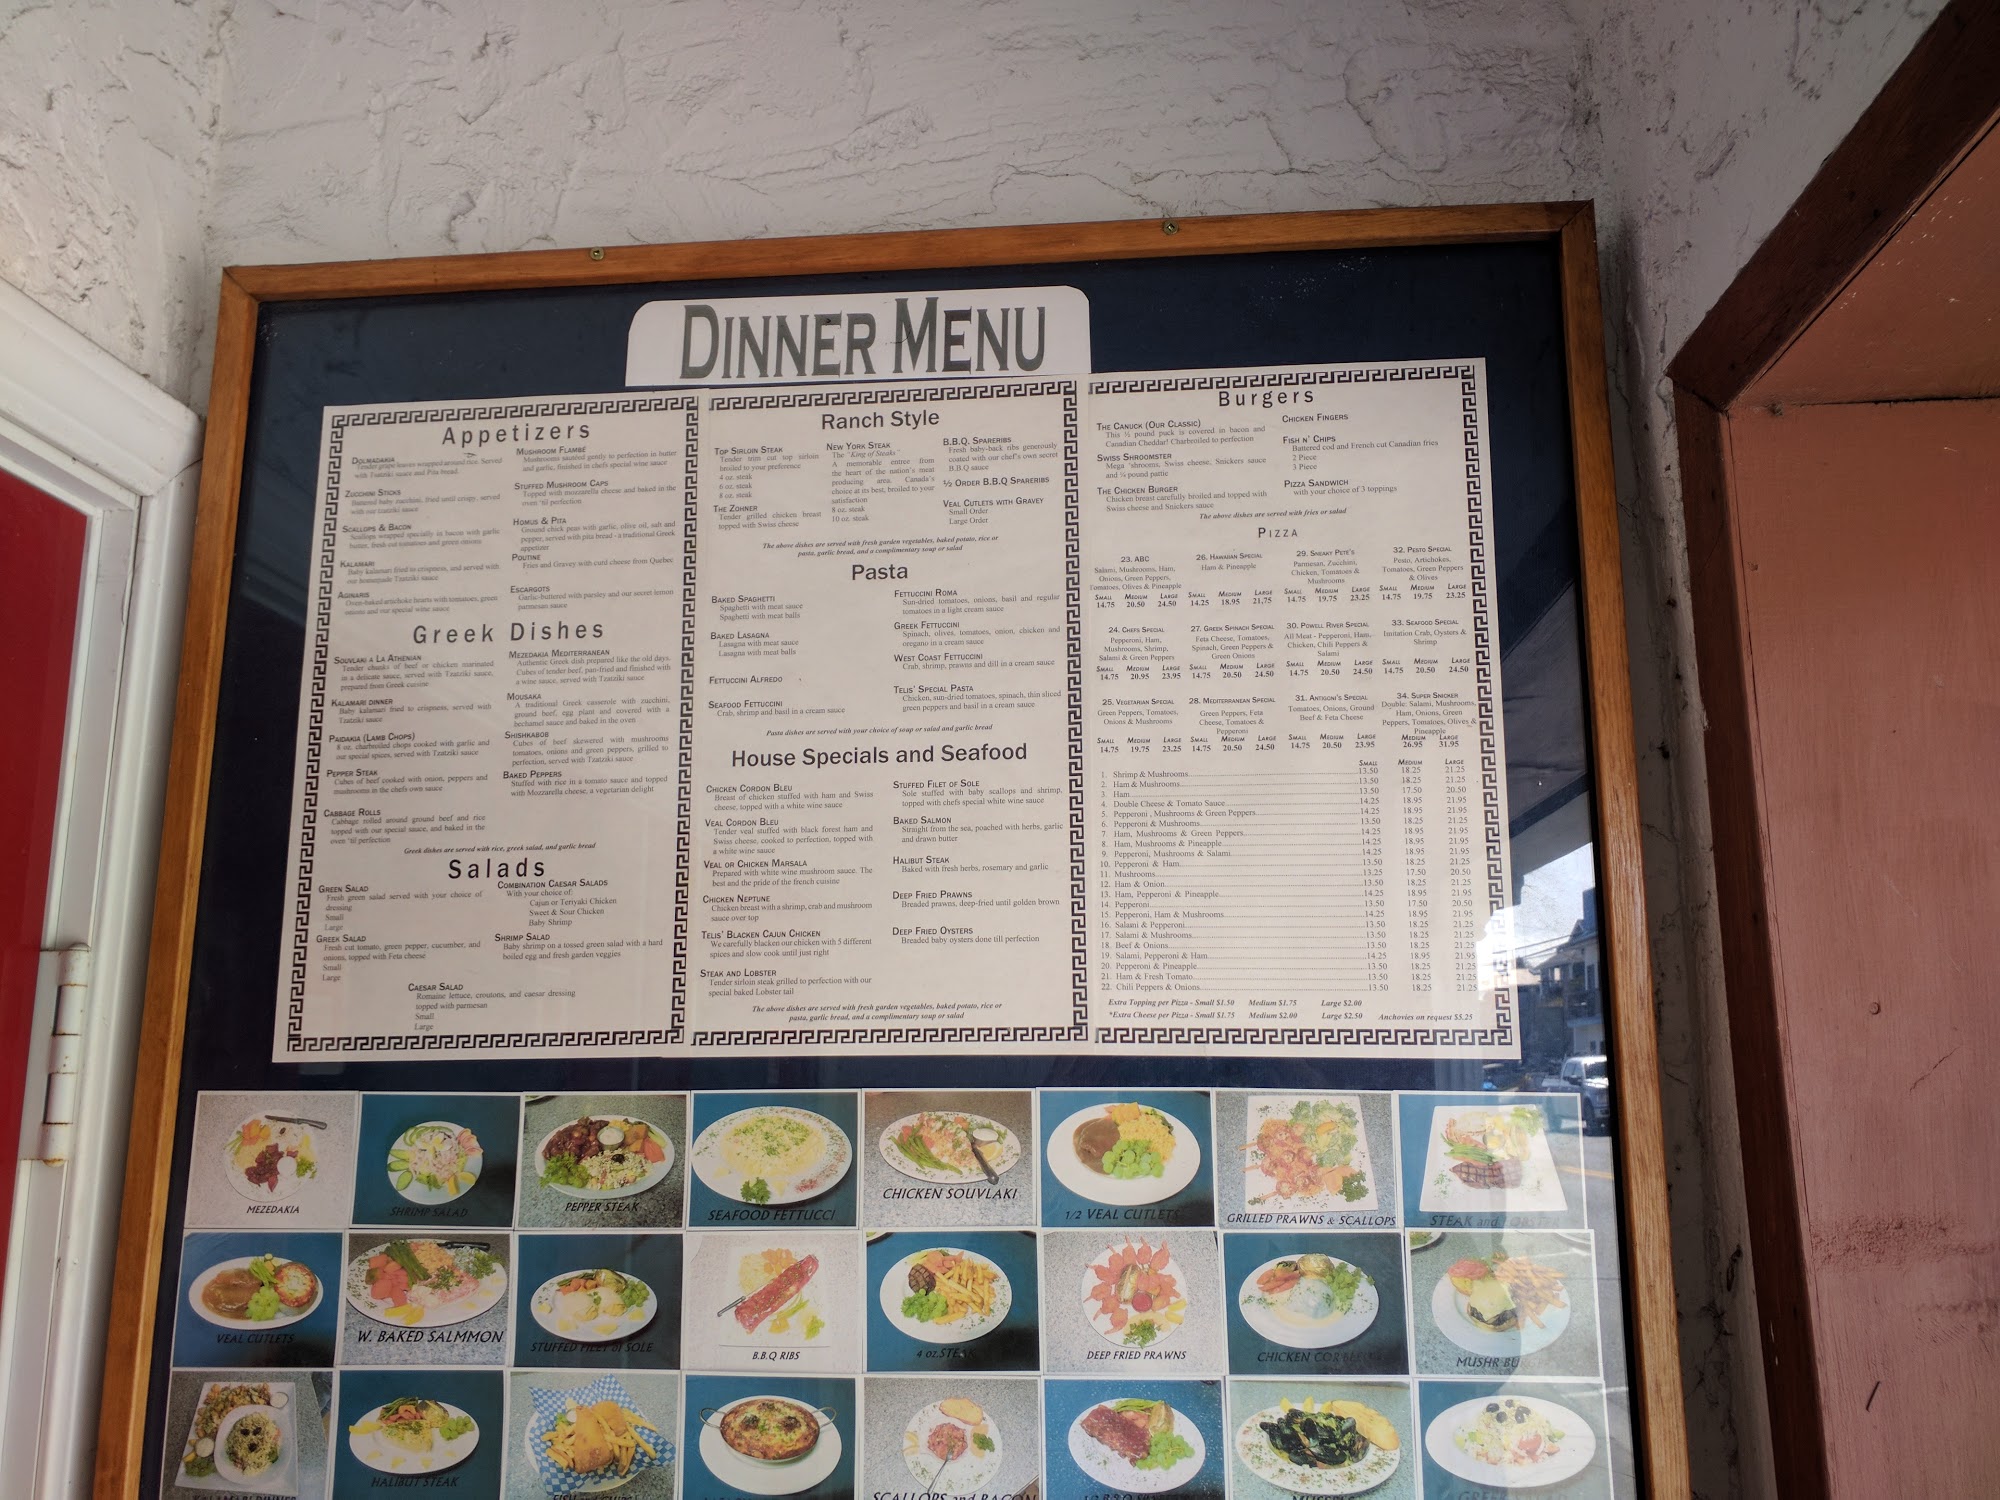 DINNER MENU
Appetizers
DOLMADAKIA
Tender grape leaves wrapped around rice. Served
with Tzatziki sauce and Pita bread.
ZUCCHINI STICKS
Battered baby zucchini, fried until crispy, served
with our tzatziki sauce
SCALLOPS & BACON
Scallops wrapped specially in bacon with garlic
butter, fresh cut tomatoes and green onions
KALAMARI
Baby kalamari fried to crispness, and served with
our homemade Tzatziki sauce
AGINARIS
Oven-baked artichoke hearts with tomatoes, green
onions and our special wine sauce
MUSHROOM FLAMBÉ
Mushrooms sautéed gently to perfection in butter
and garlic, finished in chefs special wine sauce
STUFFED MUSHROOM CAPS
Topped with mozzarella cheese and baked in the
oven 'til perfection
HOMUS & PITA
Ground chick peas with garlic, olive oil, salt and
pepper, served with pita bread - a traditional Greek
appetizer
POUTINE
Fries and Gravey with curd cheese from Quebec
ESCARGOTS
Garlic-buttered with parsley and our secret lemon
parmesan sauce
Greek Dishes
SOUVLAKI A LA ATHENIAN
Tender chunks of beef or chicken marinated
in a delicate sauce, served with Tzatziki sauce,
prepared from Greek cuisine
KALAMARI DINNER
Baby kalamari fried to crispness, served with
Tzatziki sauce
PAIDAKIA (LAMB CHOPS)
8 oz. charbroiled chops cooked with garlic and
our special spices, served with Tzatziki sauce
PEPPER STEAK
Cubes of beef cooked with onion, peppers and
mushrooms in the chefs own sauce
CABBAGE ROLLS
Cabbage rolled around ground beef and rice
topped with our special sauce, and baked in the
oven 'til perfection
MEZEDAKIA MEDITERRANEAN
Authentic Greek dish prepared like the old days.
Cubes of tender beef, pan-fried and finished with
a wine sauce, served with Tzatziki sauce
MOUSAKA
A traditional Greek casserole with zucchini,
ground beef, egg plant and covered with a
bechamel sauce and baked in the oven
SHISHKABOB
Cubes of beef skewered with mushrooms
tomatoes, onions and green peppers, grilled to
perfection, served with Tzatziki sauce
BAKED PEPPERS
Stuffed with rice in a tomato sauce and topped
with Mozzarella cheese, a vegetarian delight
Greek dishes are served with rice, greek salad, and garlic bread
Salads
GREEN SALAD
Fresh green salad served with your choice of
dressing
Small
Large
GREEK SALAD
Fresh cut tomato, green pepper, cucumber, and
onions, topped with Feta cheese
Small
Large
COMBINATION CAESAR SALADS
With your choice of:
Cajun or Teriyaki Chicken
Sweet & Sour Chicken
Baby Shrimp
SHRIMP SALAD
Baby shrimp on a tossed green salad with a hard
boiled egg and fresh garden veggies
CAESAR SALAD
Romaine lettuce, croutons, and caesar dressing
topped with parmesan
Small
Large
Ranch Style
TOP SIRLOIN STEAK
Tender trim cut top sirloin
broiled to your preference
4 oz. steak
6 oz. steak
8 oz. steak
THE ZOHNER
Tender grilled chicken breast
topped with Swiss cheese
NEW YORK STEAK
The "King of Steaks"
A memorable entree from
the heart of the nation's meat
producing area. Canada's
choice at its best, broiled to your
satisfaction
8 oz. steak
10 oz. steak
B.B.Q. SPARERIBS
Fresh baby-back ribs generously
coated with our chef's own secret
B.B.Q sauce
½ ORDER B.B.Q SPARERIBS
VEAL CUTLETS WITH GRAVEY
Small Order
Large Order
The above dishes are served with fresh garden vegetables, baked potato, rice or
pasta, garlic bread, and a complimentary soup or salad
Pasta
BAKED SPAGHETTI
Spaghetti with meat sauce
Spaghetti with meat balls
BAKED LASAGNA
Lasagna with meat sauce
Lasagna with meat balls
FETTUCCINI ALFREDO
SEAFOOD FETTUCCINI
Crab, shrimp and basil in a cream sauce
FETTUCCINI ROMA
Sun-dried tomatoes, onions, basil and regular
tomatoes in a light cream sauce
GREEK FETTUCCINI
Spinach, olives, tomatoes, onion, chicken and
oregano in a cream sauce
WEST COAST FETTUCCINI
Crab, shrimp, prawns and dill in a cream sauce
TELIS' SPECIAL PASTA
Chicken, sun-dried tomatoes, spinach, thin sliced
green peppers and basil in a cream sauce
Pasta dishes are served with your choice of soup or salad and garlic bread
House Specials and Seafood
CHICKEN CORDON BLEU
Breast of chicken stuffed with ham and Swiss
cheese, topped with a white wine sauce
VEAL CORDON BLEU
Tender veal stuffed with black forest ham and
Swiss cheese, cooked to perfection, topped with
a white wine sauce
VEAL OR CHICKEN MARSALA
Prepared with white wine mushroom sauce. The
best and the pride of the french cuisine
CHICKEN NEPTUNE
Chicken breast with a shrimp, crab and mushroom
sauce over top
TELIS' BLACKEN CAJUN CHICKEN
We carefully blacken our chicken with 5 different
spices and slow cook until just right
STEAK AND LOBSTER
Tender sirloin steak grilled to perfection with our
special baked Lobster tail
STUFFED FILET OF SOLE
Sole stuffed with baby scallops and shrimp,
topped with chefs special white wine sauce
BAKED SALMON
Straight from the sea, poached with herbs, garlic
and drawn butter
HALIBUT STEAK
Baked with fresh herbs, rosemary and garlic
DEEP FRIED PRAWNS
Breaded prawns, deep-fried until golden brown
DEEP FRIED OYSTERS
Breaded baby oysters done till perfection
The above dishes are served with fresh garden vegetables, baked potato, rice or
pasta, garlic bread, and a complimentary soup or salad
Burgers
THE CANUCK (OUR CLASSIC)
This ½ pound puck is covered in bacon and
Canadian Cheddar! Charbroiled to perfection
SWISS SHROOMSTER
Mega 'shrooms, Swiss cheese, Snickers sauce
and ¼ pound pattie
THE CHICKEN BURGER
Chicken breast carefully broiled and topped with
Swiss cheese and Snickers sauce
CHICKEN FINGERS
FISH N' CHIPS
Battered cod and French cut Canadian fries
2 Piece
3 Piece
PIZZA SANDWICH
with your choice of 3 toppings
The above are served with fries or salad
PIZZA
23. ABC
Salami, Mushrooms, Ham,
Onions, Green Peppers,
Tomatoes, Olives & Pineapple
SMALL MEDIUM LARGE
14.75 20.50 24.50
26. HAWAIIAN SPECIAL
Ham & Pineapple
SMALL MEDIUM LARGE
14.25 18.95 21.75
29. SNEAKY PETE'S
Parmesan, Zucchini,
Chicken, Tomatoes &
Mushrooms
SMALL MEDIUM LARGE
14.75 19.75 23.25
32. PESTO SPECIAL
Pesto, Artichokes,
Tomatoes, Green Peppers
& Olives
SMALL MEDIUM LARGE
14.75 19.75 23.25
24. CHEFS SPECIAL
Pepperoni, Ham,
Mushrooms, Shrimp,
Salami & Green Peppers
SMALL MEDIUM LARGE
14.75 20.95 23.95
27. GREEK SPINACH SPECIAL
Feta Cheese, Tomatoes,
Spinach, Green Peppers &
Green Onions
SMALL MEDIUM LARGE
14.75 20.50 24.50
30. POWELL RIVER SPECIAL
All Meat - Pepperoni, Ham,
Chicken, Chili Peppers &
Salami
SMALL MEDIUM LARGE
14.75 20.50 24.50
33. SEAFOOD SPECIAL
Imitation Crab, Oysters &
Shrimp
SMALL MEDIUM LARGE
14.75 20.50 24.50
25. VEGETARIAN SPECIAL
Green Peppers, Tomatoes,
Onions & Mushrooms
SMALL MEDIUM LARGE
14.75 19.75 23.25
28. MEDITERRANEAN SPECIAL
Green Peppers, Feta
Cheese, Tomatoes &
Pepperoni
SMALL MEDIUM LARGE
14.75 20.50 24.50
31. ANTIGONI'S SPECIAL
Tomatoes, Onions, Ground
Beef & Feta Cheese
SMALL MEDIUM LARGE
14.75 20.50 23.95
34. SUPER SNICKER
Double: Salami, Mushrooms,
Ham, Onions, Green
Peppers, Tomatoes, Olives &
Pineapple
MEDIUM LARGE
26.95 31.95
SMALL MEDIUM LARGE
1. Shrimp & Mushrooms 13.50 18.25 21.25
2. Ham & Mushrooms 13.50 18.25 21.25
3. Ham 13.50 17.50 20.50
4. Double Cheese & Tomato Sauce 14.25 18.95 21.95
5. Pepperoni, Mushrooms & Green Peppers 14.25 18.95 21.95
6. Pepperoni & Mushrooms 13.50 18.25 21.25
7. Ham, Mushrooms & Green Peppers 14.25 18.95 21.95
8. Ham, Mushrooms & Pineapple 14.25 18.95 21.95
9. Pepperoni, Mushrooms & Salami 14.25 18.95 21.95
10. Pepperoni & Ham 13.50 18.25 21.25
11. Mushrooms 13.25 17.50 20.50
12. Ham & Onion 13.50 18.25 21.25
13. Ham, Pepperoni & Pineapple 14.25 18.95 21.95
14. Pepperoni 13.50 17.50 20.50
15. Pepperoni, Ham & Mushrooms 14.25 18.95 21.95
16. Salami & Pepperoni 13.50 18.25 21.25
17. Salami & Mushrooms 13.50 18.25 21.25
18. Beef & Onions 13.50 18.25 21.25
19. Salami, Pepperoni & Ham 14.25 18.95 21.95
20. Pepperoni & Pineapple 13.50 18.25 21.25
21. Ham & Fresh Tomato 13.50 18.25 21.25
22. Chili Peppers & Onions 13.50 18.25 21.25
Extra Topping per Pizza - Small $1.50 Medium $1.75 Large $2.00
*Extra Cheese per Pizza - Small $1.75 Medium $2.00 Large $2.50 Anchovies on request $5.25
MEZEDAKIA
SHRIMP SALAD
PEPPER STEAK
SEAFOOD FETTUCCI
CHICKEN SOUVLAKI
1/2 VEAL CUTLETS
GRILLED PRAWNS & SCALLOPS
STEAK and LOBSTER
VEAL CUTLETS
W. BAKED SALMMON
STUFFED FILET of SOLE
B.B.Q RIBS
4 oz. STEAK
DEEP FRIED PRAWNS
CHICKEN COR
MUSHR BU
HALIBUT STEAK
SCALLOPS and BACON